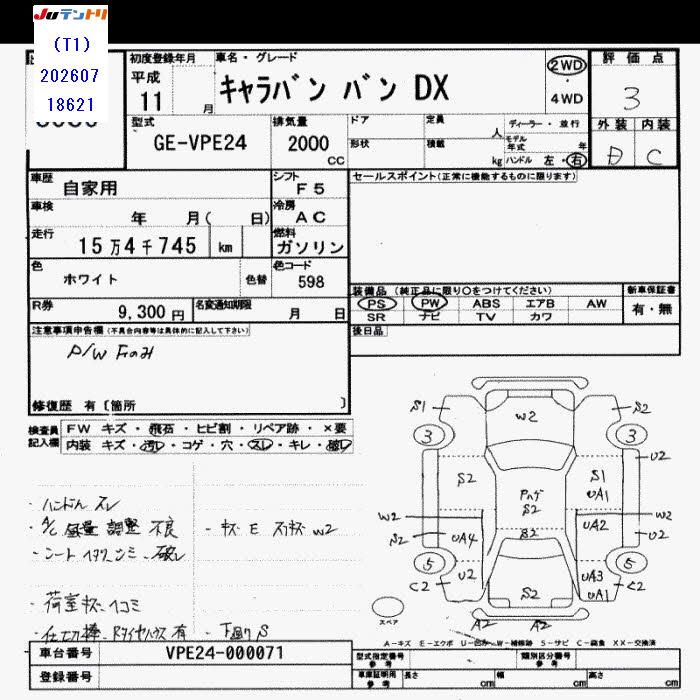 JUテントリ
(T1)
202607
18621
初度登録年月 車名・グレード 評価点
平成 11 月 キャラバン バン DX 2WD ・ 4WD 3
型式 排気量 ドア 定員 人 ディーラー・並行 外装 内装
GE-VPE24 2000 CC 形状 積載 kg モデル年式 年 ハンドル 左・右 D C
車歴 自家用 シフト F5 セールスポイント(正常に機能するものに限ります)
車検 年 月( 日) 冷房 AC
走行 15万4千745 km 燃料 ガソリン
色 ホワイト 色替 色コード 598
装備品 (純正品に限り○をつけてください) 新車保証書
R券 9,300円 名変通知期限 月 日 PS PW ABS エアB AW 有・無
SR ナビ TV カワ
注意事項申告欄 (不具合内容等は具体的に記入して下さい) 後日品
P/W Fのみ
修復歴 有 [箇所 ]
検査員記入欄 FW キズ・飛石・ヒビ割・リペア跡・×要
内装 キズ・汚レ・コゲ・穴・スレ・キレ・破レ
・ハンドル スレ
・A/C 風量 調整 不良
・荷室キズ・ヘコミ
・下廻り S
S1 W2 S2
3 3
S2 Pハゲ S2 S1 UA1 U2
W2 W2
S2 UA4 S2 UA2 U2
5 5
C2 U2 S2 UA3 UA1 C2
スペア A2 A2
A-キズ E-エクボ U-凹み W-補修跡 S-サビ C-腐食 XX-交換済
車台番号 VPE24-000071 型式指定番号 参考 類別区分番号 参考
登録番号 車庫証明用 参考 長さ cm 幅 cm 高さ cm